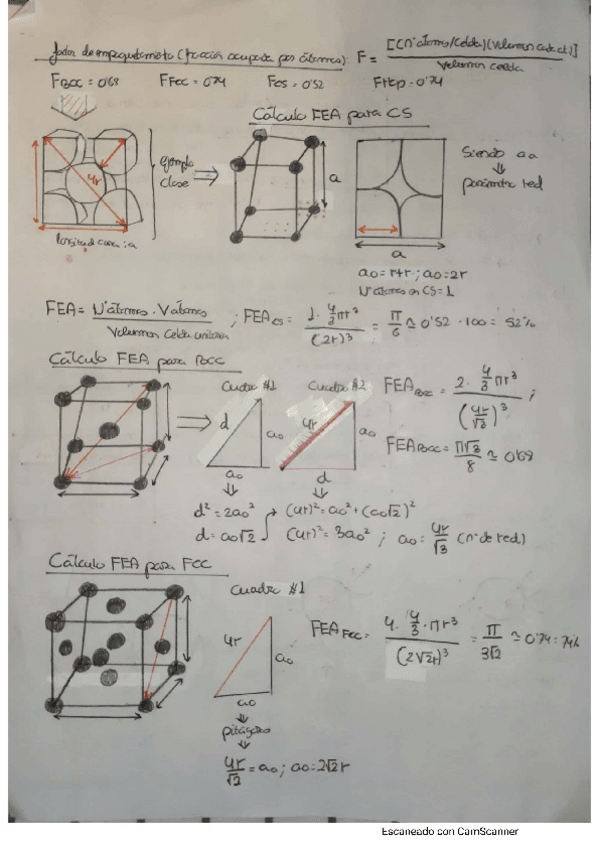 factor de empaquetamiento (fracción ocupada por átomos): F = [(nºátomos/celda)(Volumen cada át.)] / Volumen celda
FBCC = 0'68 FFCC = 0'74 FCS = 0'52 FHCP = 0'74
Cálculo FEA para CS
4r
Ejemplo
clase
a
Siendo a₀
parámetro red
longitud cara: a
a
a₀ = r+r ; a₀ = 2r
Nºátomos en CS = 1
FEA = Nºátomos · Vátomos / Volumen Celda unitaria ; FEA CS = 1 · 4/3 πr³ / (2r)³ = π/6 ≃ 0'52 · 100 = 52%
Cálculo FEA para BCC
Cuadro #1 Cuadro #2
d a₀ 4r a₀
a₀ d
FEA BCC = 2 · 4/3 πr³ / (4r/√3)³ ;
FEA BCC = π√3/8 ≃ 0'68
d² = 2a₀² (4r)² = a₀² + (a₀√2)²
d = a₀√2 (4r)² = 3a₀² ; a₀ = 4r/√3 (nº de red)
Cálculo FEA para FCC
Cuadro #1
4r a₀
a₀
FEA FCC = 4 · 4/3 · πr³ / (2√2r)³ = π/3√2 ≃ 0'74 = 74%
pitágoras
4r/√2 = a₀ ; a₀ = 2√2 r
Escaneado con CamScanner